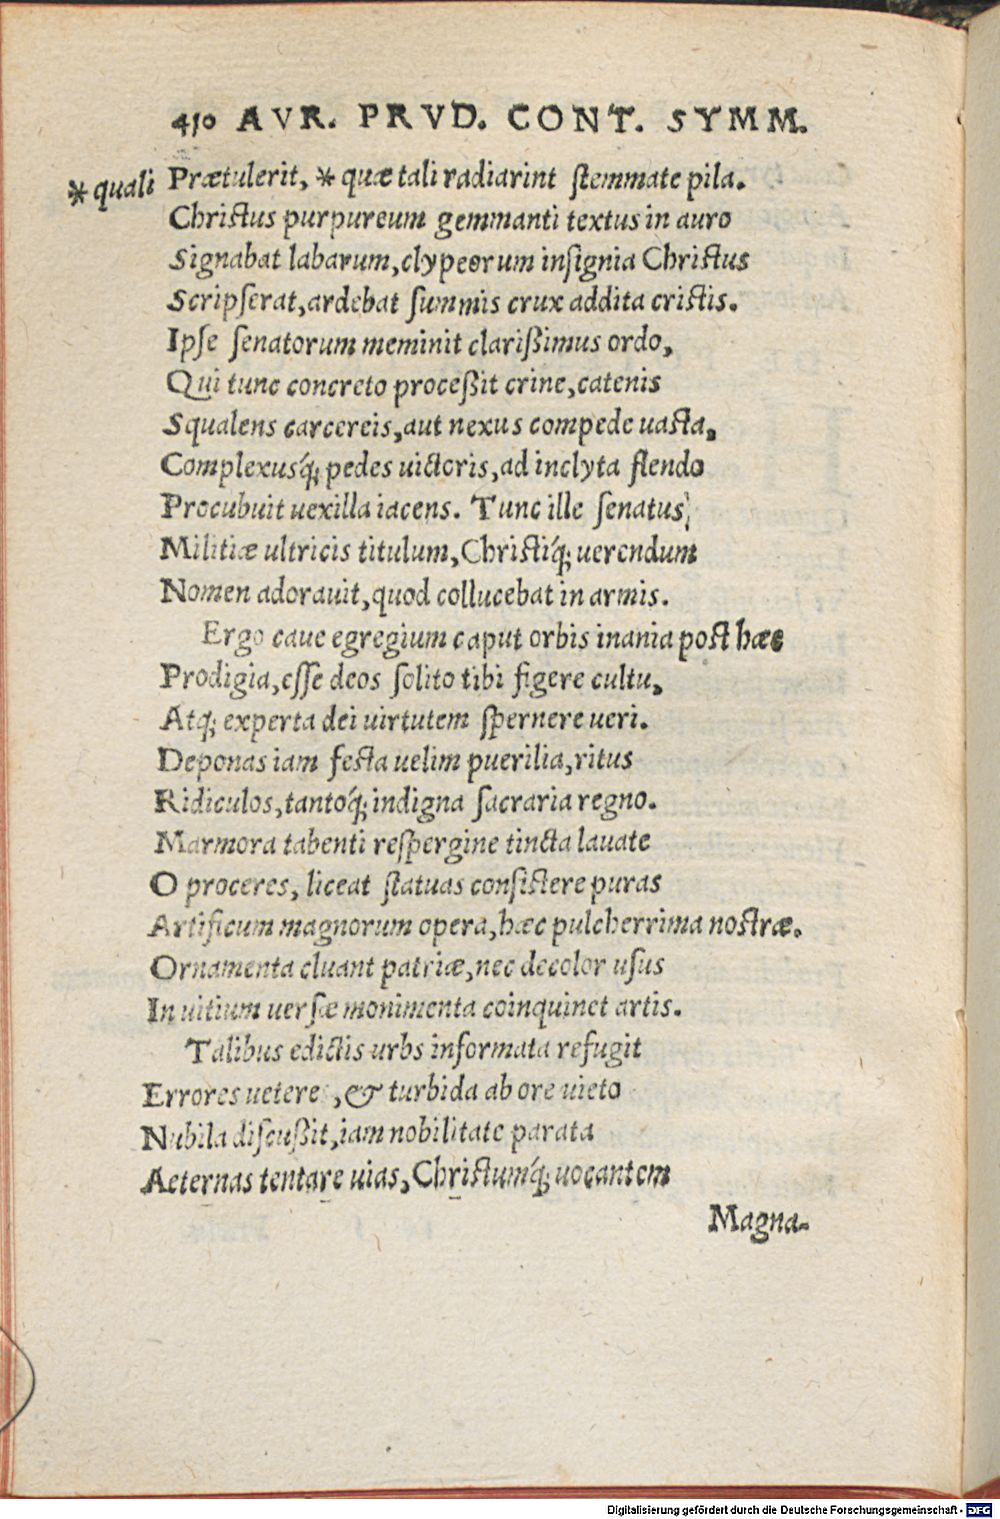 410 AVR. PRVD. CONT. SYMM.
* quali Prætulerit, * quæ tali radiarint ſtemmate pila.
Chriſtus purpureum gemmanti textus in auro
Signabat labarum, clypeorum inſignia Chriſtus
Scripſerat, ardebat ſummis crux addita criſtis.
Ipſe ſenatorum meminit clarißimus ordo,
Qui tunc concreto proceßit crine, catenis
Squalens carcereis, aut nexus compede uaſta,
Complexusq́; pedes uictoris, ad inclyta flendo
Procubuit uexilla iacens. Tunc ille ſenatus
Militiæ ultricis titulum, Chriſtiq́; uerendum
Nomen adorauit, quod collucebat in armis.
Ergo caue egregium caput orbis inania poſt hæc
Prodigia, eſſe deos ſolito tibi figere cultu,
Atq; experta dei uirtutem ſpernere ueri.
Deponas iam feſta uelim puerilia, ritus
Ridiculos, tantoq́; indigna ſacraria regno.
Marmora tabenti reſpergine tincta lauate
O proceres, liceat ſtatuas conſiſtere puras
Artificum magnorum opera, hæc pulcherrima noſtræ.
Ornamenta cluant patriæ, nec decolor uſus
In uitium uerſæ monimenta coinquinet artis.
Talibus edictis urbs informata refugit
Errores uetere , & turbida ab ore uieto
Nubila diſcußit, iam nobilitate parata
Aeternas tentare uias, Chriſtumq́; uocantem
Magna-
Digitalisierung gefördert durch die Deutsche Forschungsgemeinschaft - DFG